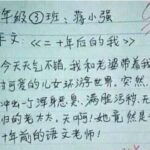 年级③班：蒋小强
作文：《二十年后的我》
今天天气不错，我和老婆带着我
可爱的儿女环游世界。突然，
冲出一个浑身恶臭，满脸污秽，无
归的老太太，天啊！她竟然是
十年前的语文老师！